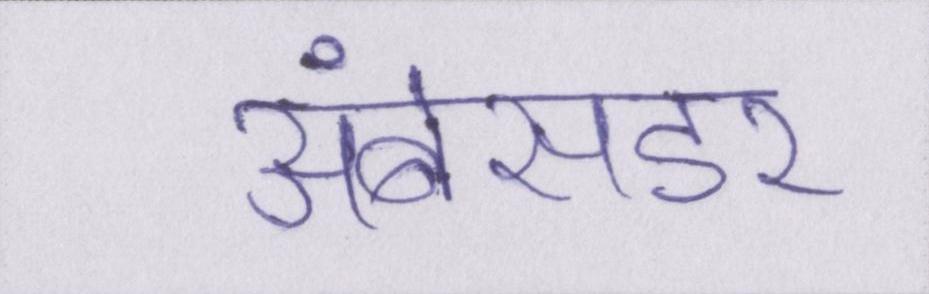 अंबेसडर